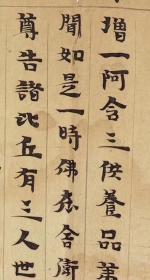 增一阿含三供養品第
聞如是一時佛在舍衛
尊告諸比丘有三人世